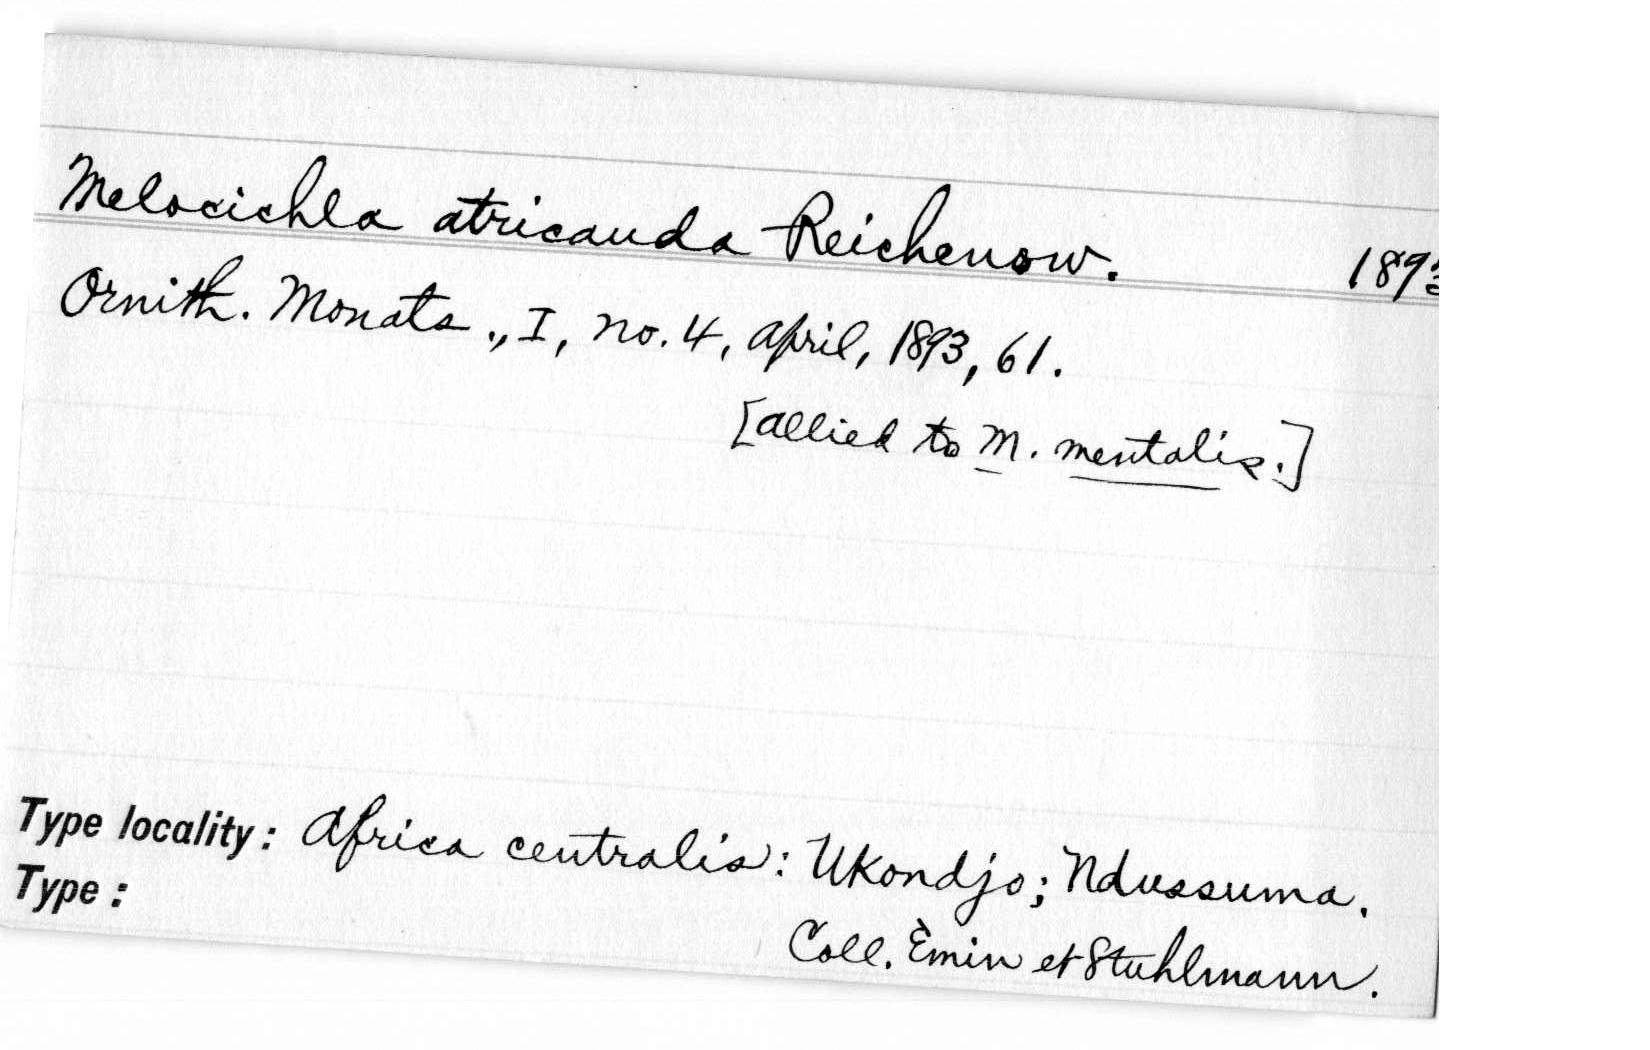 Melocichla atricauda Reichenow. 1893
Ornith. Monats., I, no. 4, April, 1893, 61.
[allied to M. mentalis.]
Type locality: Africa centralis: Ukondjo; Ndussuma.
Type:
Coll. Emin et Stuhlmann.